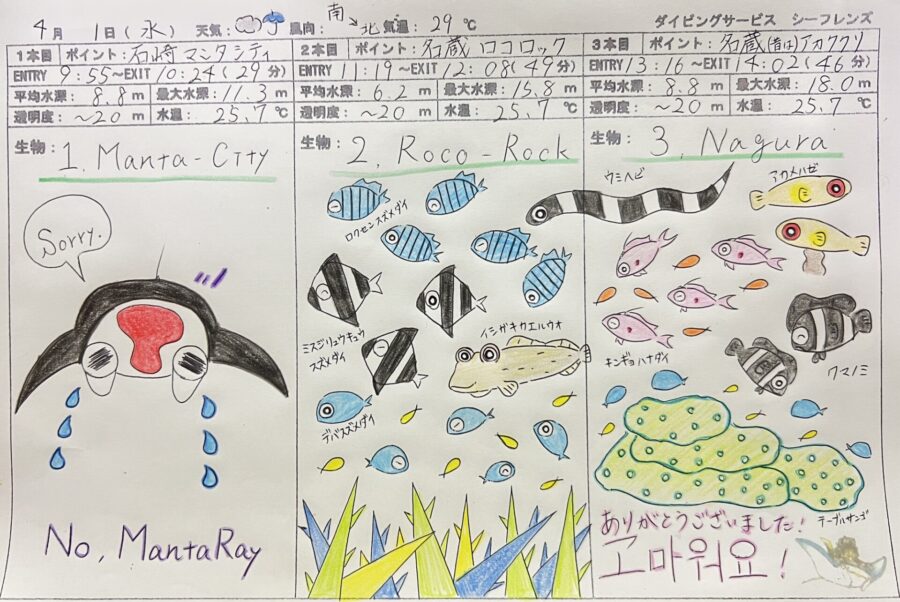 4月 1日(水) 天気: 風向: 南↘北 気温: 29℃ ダイビングサービス シーフレンズ
1本目 ポイント: 石崎マンタシティ
ENTRY 9:55~EXIT 10:24(29分)
平均水深: 8.8 m 最大水深: 11.3 m
透明度: ~20 m 水温: 25.7℃
生物: 1. Manta-City
Sorry.
No, MantaRay
2本目 ポイント: 名蔵ロコロック
ENTRY 11:19~EXIT 12:08(49分)
平均水深: 6.2 m 最大水深: 15.8 m
透明度: ~20 m 水温: 25.7℃
生物: 2. Roco-Rock
ロクセンスズメダイ
ミスジリュウキュウ
スズメダイ
イシガキカエルウオ
デバスズメダイ
3本目 ポイント: 名蔵(昔は)アカククリ
ENTRY 13:16~EXIT 14:02(46分)
平均水深: 8.8 m 最大水深: 18.0 m
透明度: ~20 m 水温: 25.7℃
生物: 3. Nagura
ウミヘビ
アカメハゼ
キンギョハナダイ
クマノミ
テーブルサンゴ
ありがとうございました!
고마워요!